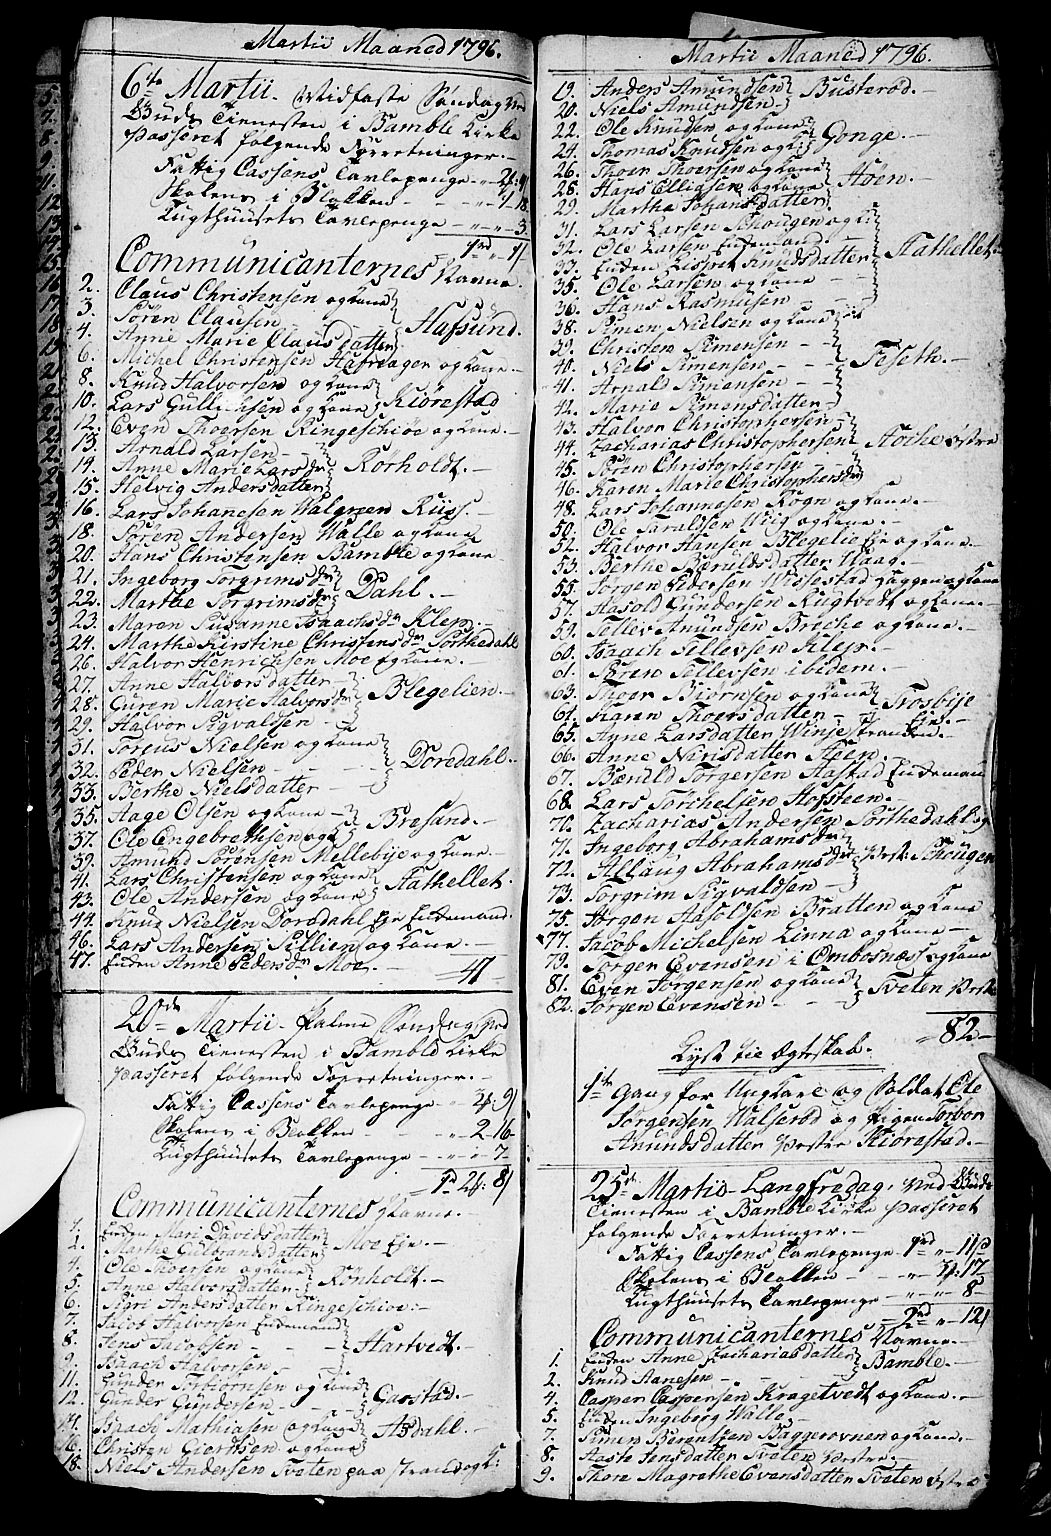 Martii Maaned 1796.
6te Martii. Midfaste Søndag ved
Guds Tienesten i Bamble Kirke
passeret følgende Forretninger.
Fattig Cassens Tavlepenge
Skolens i Blokken
Tugthuusets Tavlepenge 3
Communicanternes Navne.
2. Claus Christensen og Kone
3. Søren Clausen
4. Anne Marie Clausdatter Hafsund.
6. Michel Christensen Hafredagen og Kone.
8. Knud Halvorsen og Kone
10. Lars Gullichsen og Kone Kiørestad
12. Even Thoersen Ringeschiøe og Kone.
13. Arnald Larsen
14. Anne Marie Larsdr Rørholdt.
15. Helvig Andersdatter
16. Lars Johanesen Russ.
18. Søren Andersen Walle og Kone
20. Hans Christensen Bamble og Kone
21. Ingeborg Torgrimsdr
22. Marthe Torgrimsdr Dahl.
23. Maren Susanne Isaachsdr Klep.
24. Marthe Kirstine Christensdr Sørthedahl
26. Halvor Henrichsen Moe og Kone.
27. Anne Halvorsdatter
28. Guren Marie Halvorsdr Blegelien.
29. Halvor Sigvaldsen
31. Torgus Nielsen og Kone
32. Peder Nielsen Doredahl.
33. Berthe Nielsdatter
35. Aage Olsen og Kone
37. Ole Engebrethsen og K: Bresand.
39. Amund Sørensen Mellebye og Kone.
41. Lars Christensen og Kone
43. Ole Andersen og Kone Aathellet.
44. Knud Nielsen Doredahl Eje Enkemand.
46. Lars Andersen Sillien og Kone.
47. Enken Anne Pedersdr Moe.
47
20de Martii. Palme Søndag ved
Guds Tienesten i Bamble Kirke
passeret følgende Forretninger.
Fattig Cassens Tavlepenge
Skolens i Blokken 2 16
Tugthuusets Tavlepenge 7
Communicanternes Navne.
1. Enken Mari Davidsdatter
2. Marthe Gulbrandsdatter Moe Eje.
4. Ole Thoersen og Kone
5. Anne Halvorsdatter Rønholdt.
6. Sigri Andersdatter Ringeschiøe.
7. Jacob Halvorsen Enkemand
8. Jens Jacobsen Hartvedt.
9. Isaach Halvorsen
11. Gunder Torbiørnsen og Kone
12. Gunder Gundersen Gasstad.
14. Isaach Mathiasen og Kone
16. Christen Giertsen og Kone Asdahl.
18. Niels Andersen Tveten paa Strand og K:
Martii Maaned 1796.
19. Anders Amundsen
20. Niels Amundsen Busterød.
22. Ole Knudsen og Kone
24. Thomas Knudsen og K: Gonge.
26. Thoer Thoersen og Kone
28. Hans Elliasen og Kone Høen.
29. Martha Johansdatter
31. Lars Larsen Schougen og K:
32. Ole Larsen Enkemand
33. Enken Lisbet Knudsdatter Aathellet.
35. Ole Larsen og Kone
36. Hans Rasmusen
38. Simen Nielsen og Kone
39. Christen Simensen
40. Niels Simensen Feseth.
41. Arnald Simensen
42. Marie Simensdatter
43. Halvor Christophersen
44. Zacharias Christophersen Aache østre
45. Søren Christophersen
46. Karen Marie Christophersdr
48. Lars Johannesen Rogn og Kone.
50. Ole Tavaldsen Wiig og Kone.
52. Halvor Hansen Blegelie Eje og Kone.
53. Berthe Bæruldsdatter Haag.
55. Jørgen Pedersen Wissestad og Kone
57. Aasold Gundersen Rugtvedt og Kone
59. Tellev Amundsen Broche og Kone.
60. Isaach Tellevsen Klep.
61. Søren Tellevsen ibidem.
63. Thoer Biørnsen og Kone Trosbye
64. Karen Thoersdatter Eje.
65. Anne Larsdatter Winje Stranden.
66. Anne Nirisdatter Steen.
67. Bæruld Torgersen Aastad Enkemand
68. Lars Torchelsen Hofsteen.
70. Zacharias Andersen Sørthedahl og
71. Ingeborg Abrahamsdr
72. Allaug Abrahamsdr vest: Schougen
73. Torgrim Sigvaldsen
75. Jørgen Aasoldsen Bratten og Kone
77. Jacob Michelsen Linna og Kone
79. Torger Evensen i Ombosnæss og Kone
81. Even Jørgensen og Kone Tveten vestre
82. Jørgen Evensen
82
Lyst til Ægteskab.
1te Gang for Ungkarl og Soldat Ole
Jørgensen Walserød og Pigen Torbor
Amundsdatter vestre Kiørestad.
25de Martii Langfredag, ved Guds
Tienesten i Bamble Kirke passeret
følgende Forretninger.
Fattig Cassens Tavlepenge
Skolens i Blokken
Tugthuusets Tavlepenge 8
Communicanternes Navne.
1. Enken Anne Zachariasdatter
2. Knud Aanesen Bamble.
4. Casper Caspersen Kragetvedt og Kone.
5. Enken Ingeborg Walle.
7. Simen Berentsen Baggerovnen og Kone.
8. Aaste Jensdatter Tveten vestre.
9. Thore Magrethe Evensdatter Tveten østre